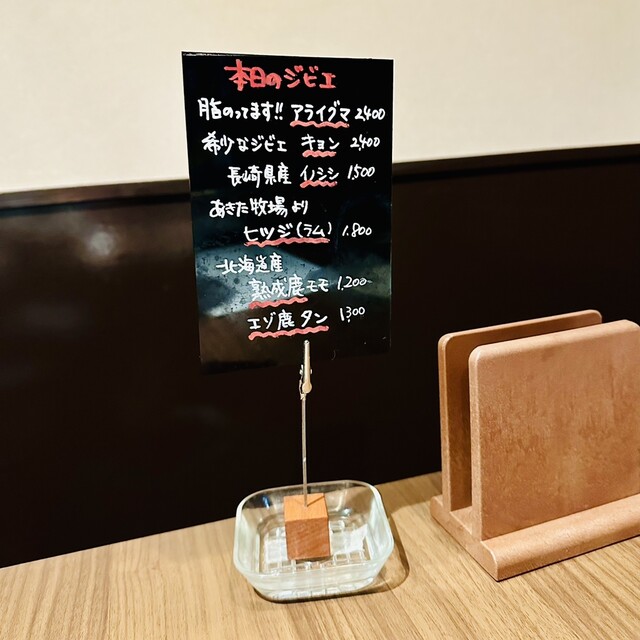 本日のジビエ
脂のってます!! アライグマ 2400
希少なジビエ キョン 2400
長崎県産 イノシシ 1,500
あきた牧場より
ヒツジ(ラム) 1.800
北海道産
熟成鹿モモ 1.200
エゾ鹿 タン 1300